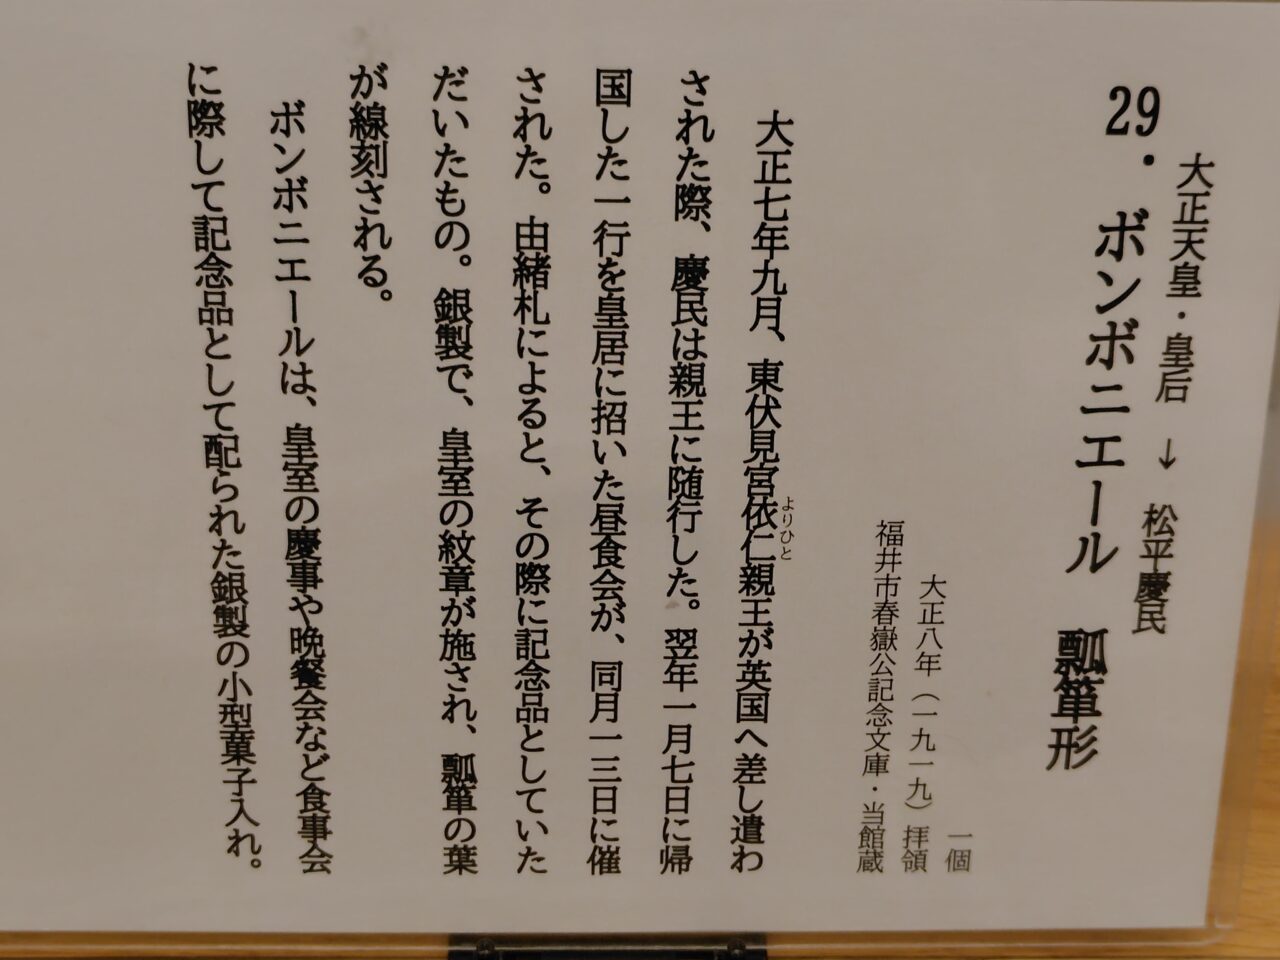 大正天皇・皇后 → 松平慶民
29．ボンボニエール 瓢箪形
一個
大正八年（一九一九）拝領
福井市春嶽公記念文庫・当館蔵
大正七年九月、東伏見宮依仁親王が英国へ差し遣わ
よりひと
された際、慶民は親王に随行した。翌年一月七日に帰
国した一行を皇居に招いた昼食会が、同月一三日に催
された。由緒札によると、その際に記念品としていた
だいたもの。銀製で、皇室の紋章が施され、瓢箪の葉
が線刻される。
ボンボニエールは、皇室の慶事や晩餐会など食事会
に際して記念品として配られた銀製の小型菓子入れ。